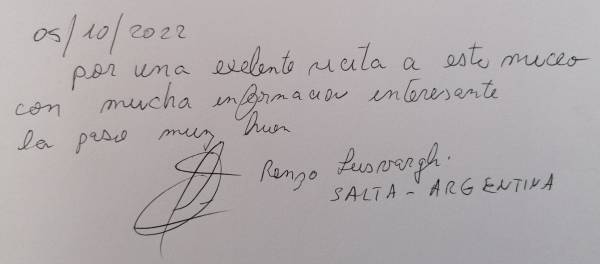 05/10/2022
por una exelente vicita a este museo
con mucha informacion interesante
la pase muy buen
Renzo Lusvarghi.
SALTA - ARGENTINA